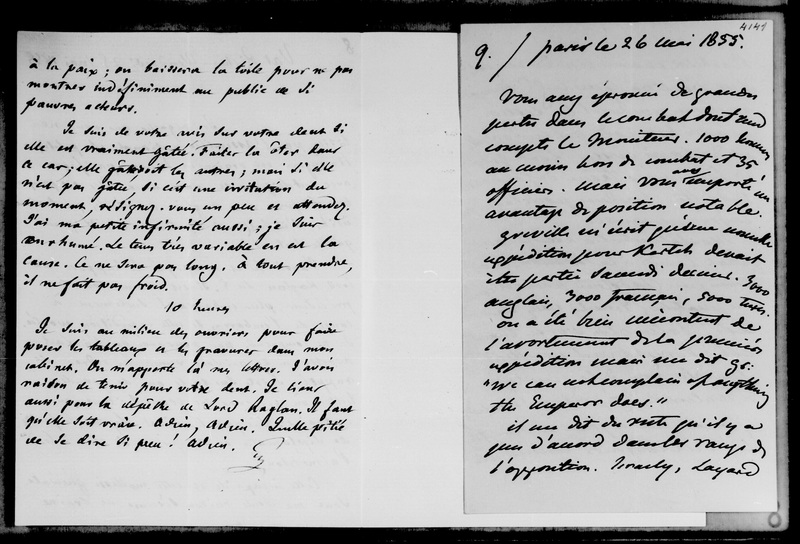 à la paix ; on baissera la toile pour ne pas
montrer indéfiniment au public de si
pauvres acteurs.
Je suis de votre avis sur votre dent si
elle est vraiment gâtée. Faites la ôter dans
ce cas ; elle gâteroit les autres ; mais si elle
n'est pas gâtée, si c'est une irritation du
moment, résignez-vous un peu et attendez.
J'ai ma petite infirmité aussi ; je suis
enrhumé. Le tems très variable en est la
cause. Ce ne sera pas long. À tout prendre,
il ne fait pas froid.
10 heures
Je suis au milieu des ouvriers pour faire
poser les tableaux et les gravures dans mon
cabinet. On m'apporte là mes lettres. J'avois
raison de tenir pour votre dent. Je tiens
aussi pour la dépêche de Lord Raglan. Il faut
qu'elle soit vraie. Adieu, Adieu. Quelle pitié
de se dire si peu ! Adieu.
4141
9. / paris le 26 mai 1855.
Vous avez éprouvé de grandes
pertes dans le combat dont rend
compte le Moniteur. 1000 hommes
au moins hors de combat et 35
officiers. mais vous avez emporté un
avantage de position notable.
greville m'écrit qu'une nouvelle
expédition pour Kertch devait
être partie samedi dernier. 3000
anglais, 3000 français, 5000 turcs.
on a été bien mécontent de
l'avortement de la première
expédition mais me dit G:
"We can not complain of anything
the Emperor does."
il me dit du reste qu'il y a
peu d'accord dans les rangs de
l'opposition. Israely, Layard